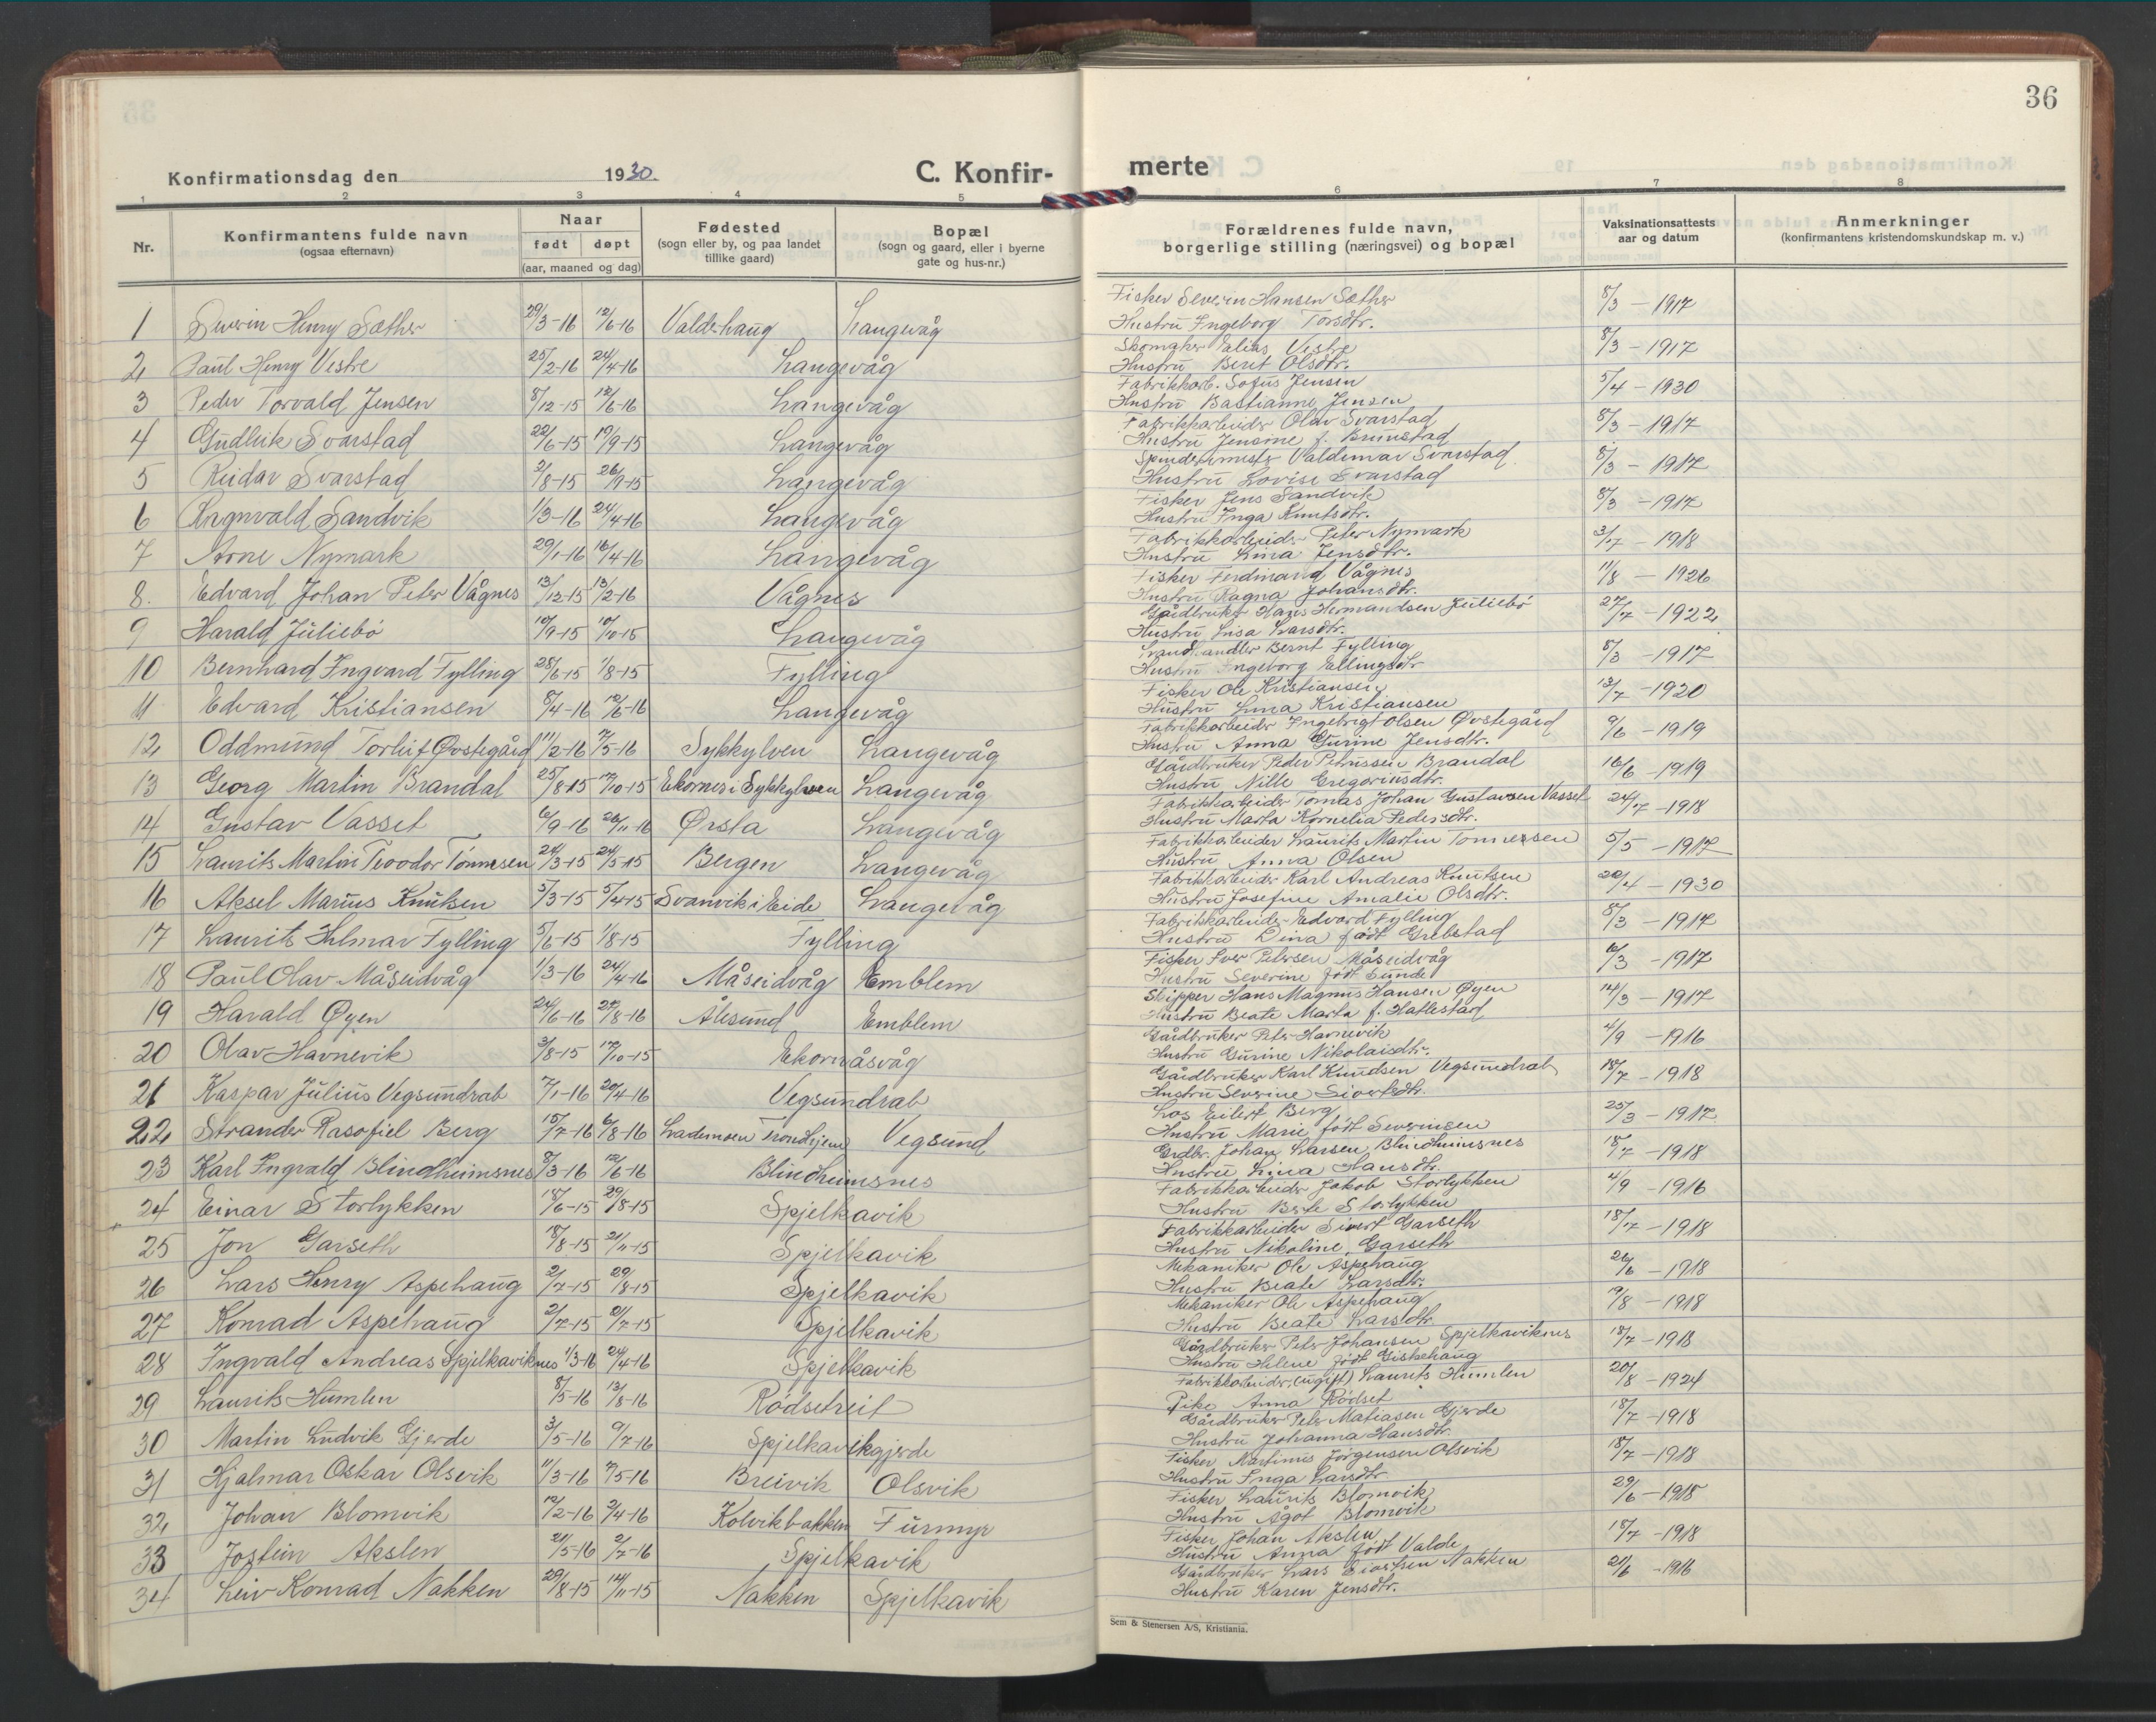 36
Konfirmationsdag den 1930. C. Konfirmerte
1 2 3 4 5 6 7 8
Nr. Konfirmantens fulde navn (ogsaa efternavn) Naar født døpt (aar, maaned og dag) Fødested (sogn eller by, og paa landet tillike gaard) Bopæl (sogn og gaard, eller i byerne gate og hus-nr.) Forældrenes fulde navn, borgerlige stilling (næringsvei) og bopæl Vaksinationsattests aar og datum Anmerkninger (konfirmantens kristendomskundskap m. v.)
1 Severin Henry Sæther 29/3-16 12/6-16 Valderhaug Langevåg Fisker Severin Hansen Sæther 8/3-1917
Hustru Ingeborg Torsdtr.
2 Paul Henry Vestre 25/2-16 24/4-16 Langevåg Skomaker Elias Vestre 8/3-1917
Hustru Berit Olsdtr.
3 Peder Torvald Jensen 8/12-15 12/6-16 Langevåg Fabrikkarb. Sofus Jensen 5/4-1930
Hustru Bastianne Jensen
4 Gudleik Svarstad 22/6-15 19/9-15 Langevåg Fabrikkarbeider Olav Svarstad 8/3-1917
Hustru Jensine f. Brunstad
5 Reidar Svarstad 2/8-15 26/9-15 Langevåg Spinderimester Valdemar Svarstad 8/3-1917
Hustru Lovise Svarstad
6 Ragnvald Sandvik 1/3-16 24/4-16 Langevåg Fisker Jens Sandvik 8/3-1917
Hustru Inga Knutsdtr.
7 Arne Nymark 29/1-16 16/4-16 Langevåg Fabrikkarbeider Peter Nymark 3/7-1918
Hustru Lina Jensdtr.
8. Edvard Johan Peter Vågnes 13/12-15 13/2-16 Vågnes Fisker Ferdinand Vågnes 11/8-1926
Hustru Ragna Johansdtr.
9 Harald Juliebö 10/9-15 10/10-15 Langevåg Gårdbruker Hans Hermandsen Juliebö 27/7-1922
Hustru Lisa Larsdtr.
10 Bernhard Ingvard Fylling 28/6-15 1/8-15 Fylling Landhandler Bernt Fylling 8/3-1917
Hustru Ingeborg Ellingsdtr
11 Edvard Kristiansen 8/4-16 12/6-16 Langevåg Fisker Ole Kristiansen 13/7-1920
Hustru Lina Kristiansen
12 Oddmund Torleif Øvstegård 11/2-16 7/5-16 Sykkylven Langevåg Fabrikkarbeider Ingebrigt Olsen Øvstegård 9/6-1919
Hustru Anna Gurine Jensdtr.
13 Georg Martin Brandal 25/8-15 17/10-15 Ekornes i Sykkylven Langevåg Gårdbruker Peder Petrussen Brandal 16/6-1919
Hustru Nille Gregoriusdtr.
14 Gustav Vasset 6/9-16 26/11-16 Ørsta Langevåg Fabrikkarbeider Tomas Johan Gustavsen Vasset 24/7-1918
Hustru Marta Kornelia Pedersdtr.
15 Laurits Martin Teodor Tönnesen 24/3-15 24/5-15 Bergen Langevåg Fabrikkarbeider Laurits Martin Tonnessen 5/5-1917
Hustru Anna Olsen
16 Aksel Marius Knutsen 5/3-15 5/4-15 Svanvik i Eide Langevåg Fabrikkarbeider Karl Andreas Knutsen 20/4-1930
Hustru Josefine Amalie Olsdtr.
17 Laurits Hilmar Fylling 5/6-15 1/8-15 Fylling Fabrikkarbeider Edvard Fylling 8/3-1917
Hustru Dina född Grebstad
18 Paul Olav Måseidvåg 1/3-16 24/4-16 Måseidvåg Emblem Fisker Iver Petersen Måseidvåg 6/3-1917
Hustru Severine född Sunde
19 Harald Øyen 24/6-16 27/8-16 Ålesund Emblem Skipper Hans Magnus Hansen Øyen 14/3-1917
Hustru Beate Marta f. Hatlestad
20 Olav Havnevik 3/8-15 17/10-15 Ekornåsvåg Gårdbruker Peter Havnevik 4/9-1916
Hustru Gurine Nikolaisdtr.
21 Kaspar Julius Vegsundrab 7/1-16 20/4-16 Vegsundrab Gårdbruker Karl Knudsen Vegsundrab 18/7-1918
Hustru Severine Sivertsdtr.
22 Strander Rasofiel Berg 15/7-16 6/8-16 Lademoen Trondhjem Vegsund Los Eilert Berg 25/3-1917
Hustru Marie født Severinsen
23 Karl Ingvald Blindheimsnes 8/3-16 12/6-16 Blindheimsnes Grdbr. Johan Larsen Blindheimsnes 18/7-1918
Hustru Lina Hansdtr.
24 Einar Storlykken 18/6-15 29/8-15 Spjelkavik Fabrikkarbeider Jakob Storlykken 4/9-1916
Hustru Berte Storlykken
25 Jon Garseth 18/8-15 21/11-15 Spjelkavik Fabrikkarbeider Sivert Garseth 18/7-1918
Hustru Nikoline Garseth
26 Lars Henry Aspehaug 2/7-15 29/8-15 Spjelkavik Mekaniker Ole Aspehaug 26/6-1918
Hustru Beate Larsdtr.
27 Konrad Aspehaug 2/7-15 21/7-15 Spjelkavik Mekaniker Ole Aspehaug 19/8-1918
Hustru Beate Larsdtr
28 Ingvald Andreas Spjelkaviknes 1/3-16 24/4-16 Spjelkavik Gårdbruker Peter Johansen Spjelkaviknes 18/7-1918
Hustru Helene född Giskehaug
29 Laurits Humlen 8/5-16 13/8-16 Rödsetreit Fabrikkarbeider, (ugift) Laurits Humlen 20/8-1924
Pike Anna Rödset
30 Martin Ludvik Gjerde 3/5-16 9/7-16 Spjelkavikgjerde Gårdbruker Peter Matiasen Gjerde 18/7-1918
Hustru Johanna Hansdtr.
31 Hjalmar Oskar Olsvik 11/3-16 7/5-16 Breivik Olsvik Fisker Martinus Jörgensen Olsvik 18/7-1918
Hustru Inga Larsdtr
32 Johan Blomvik 12/2-16 2/4-16 Kolvikbakken Furmyr Fisker Laurits Blomvik 29/6-1918
Hustru Ågot Blomvik
33 Jostein Akslen 21/5-16 2/7-16 Spjelkavik Fisker Johan Akslen 18/7-1918
Hustru Anna född Valde
34 Leiv Konrad Nakken 29/8-15 14/11-15 Nakken Spjelkavik Gårdbruker Lars Sivertsen Nakken 21/6-1916
Hustru Karen Jensdtr.
Sem & Stenersen A/S, Kristiania.